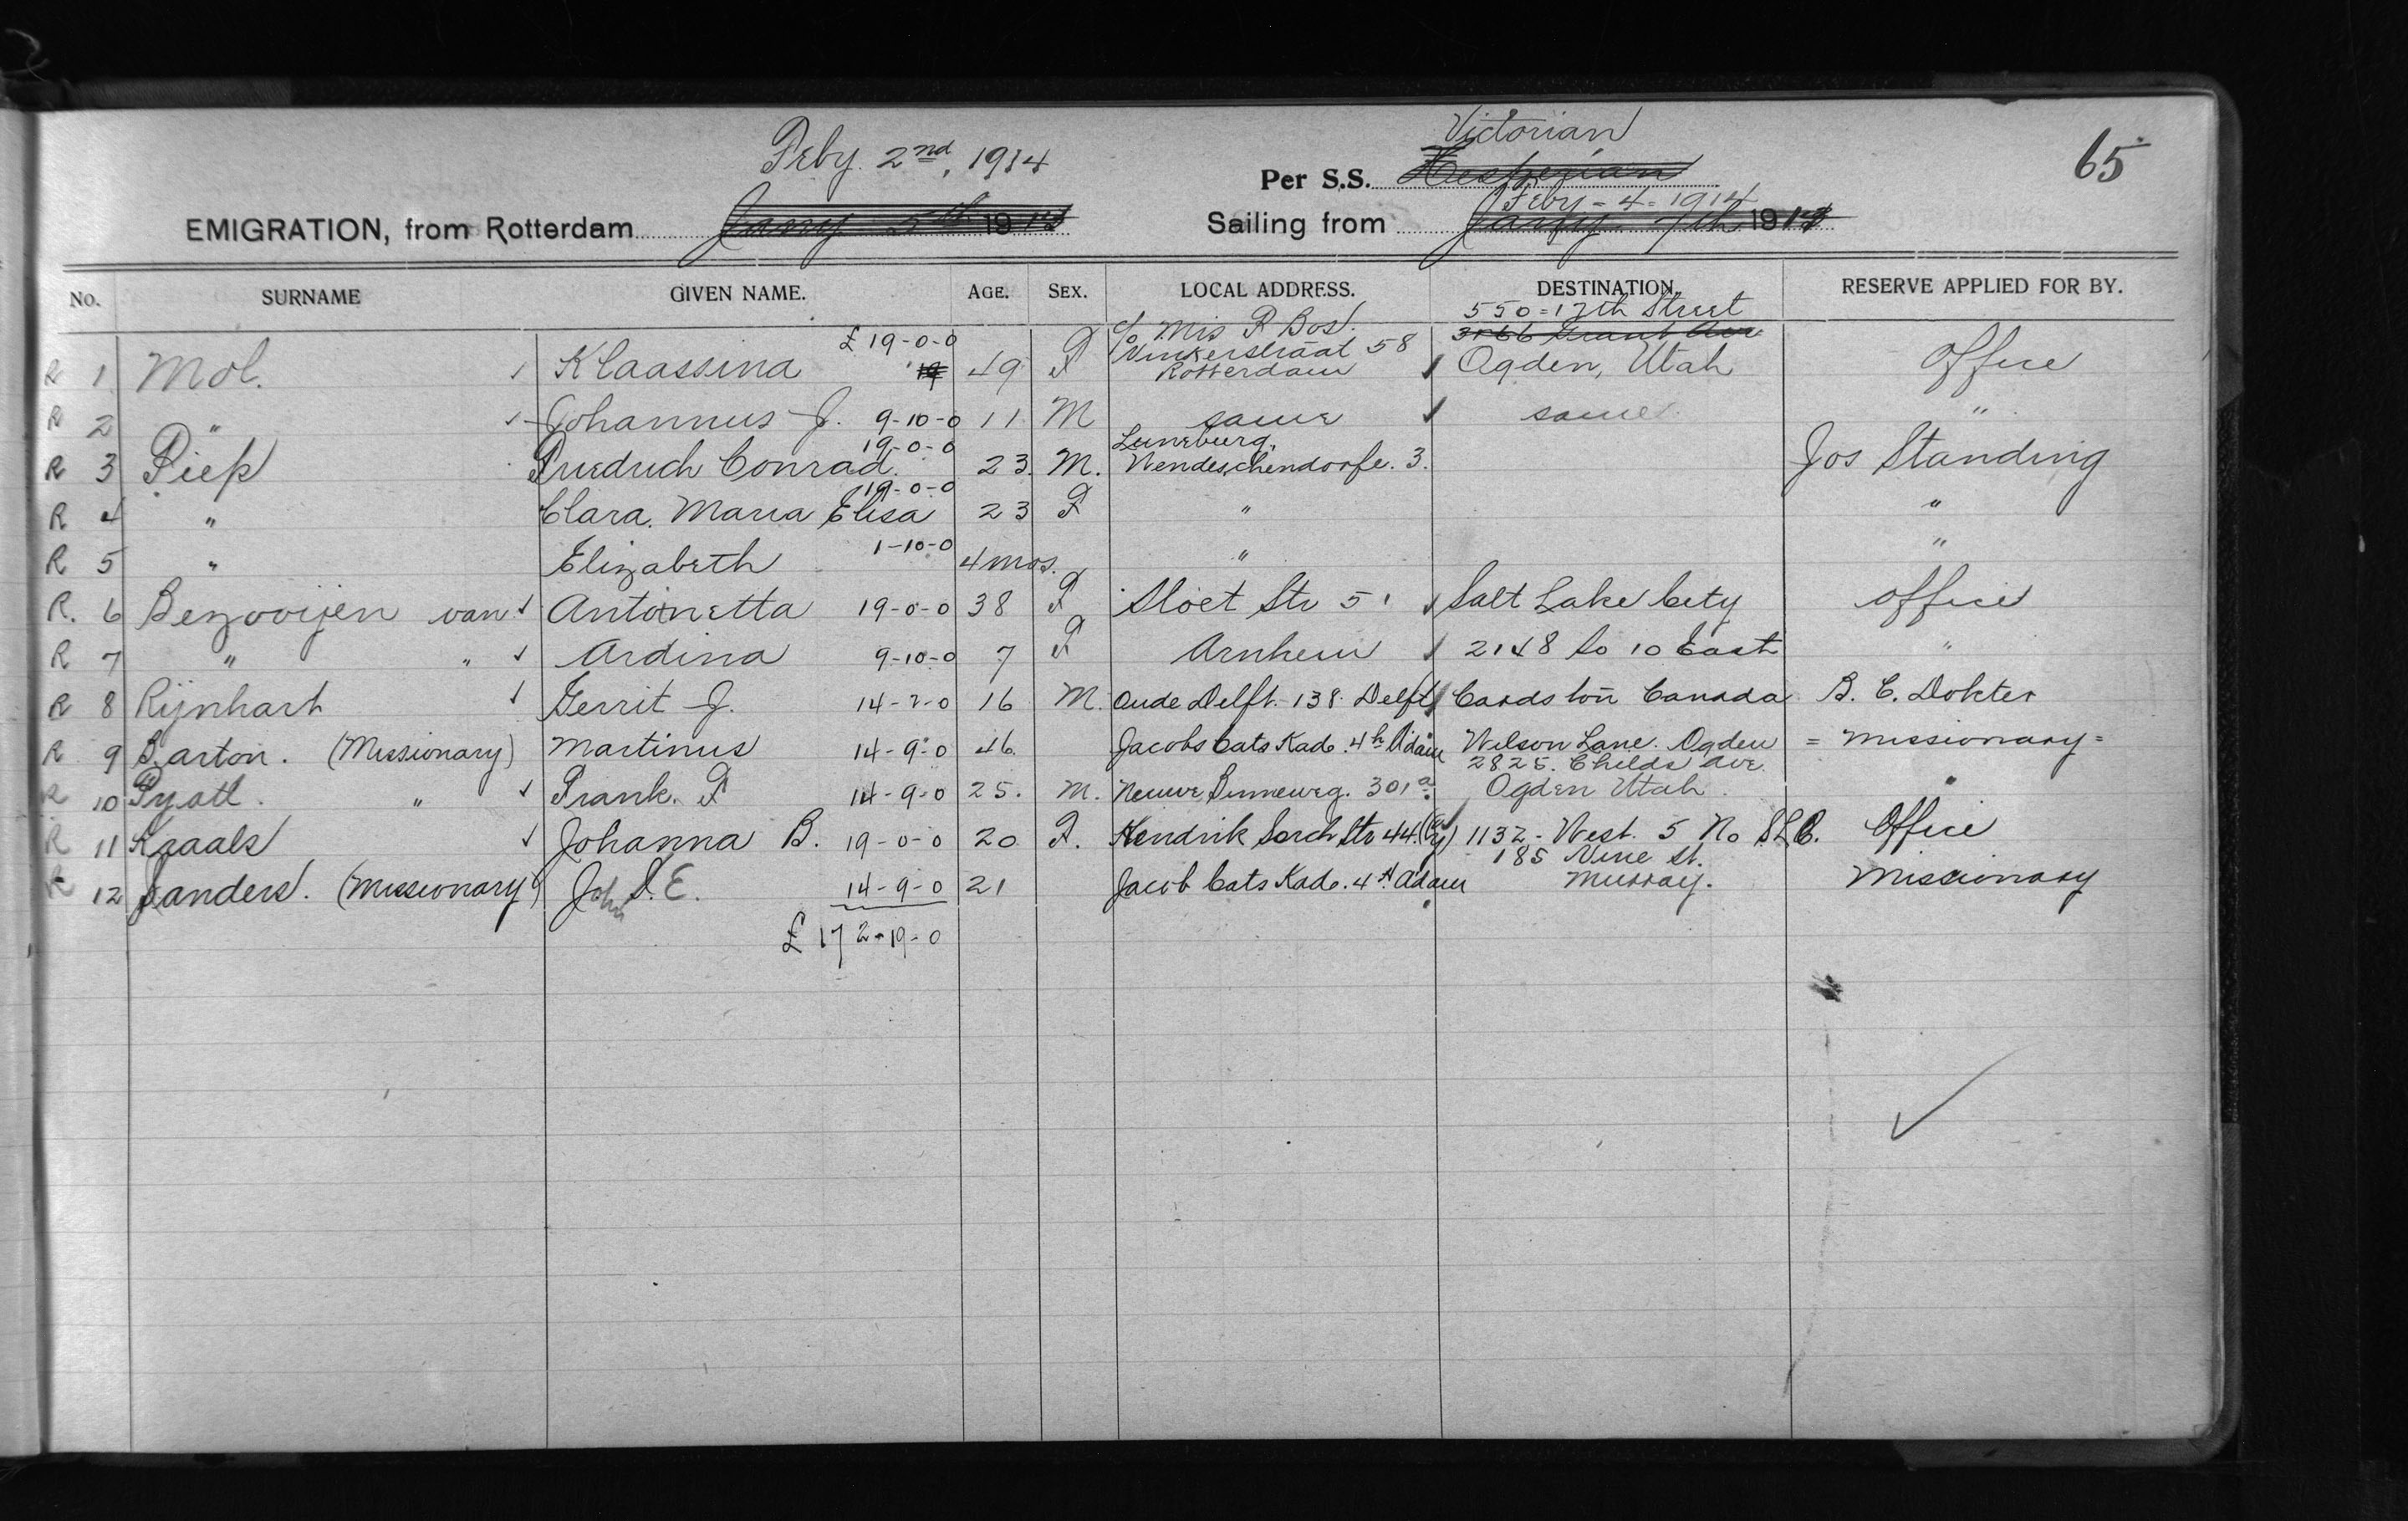 65
Feby. 2nd, 1914
Victorian
Per S.S. Hesperian
EMIGRATION, from Rotterdam Jany 5th 1914
Feby - 4 - 1914
Sailing from Jany 7th 1914
No. SURNAME GIVEN NAME. AGE. SEX. LOCAL ADDRESS. DESTINATION. RESERVE APPLIED FOR BY.
£ 19-0-0 c/o Mis P Bos. 550 = 17th Street
Vinkerstraat 58 3166 Grant Ave
R 1 Mol. Klaassina 19 49 F Rotterdam Ogden, Utah Office
R 2 " Johannus J. 9-10-0 11 M same same "
19-0-0 Luneburg,
R 3 Piep Friedrich Conrad. 23. M. Wendeschendorfe. 3. Jos Standing
19-0-0
R 4 " Clara. Maria Elisa 23 F " "
R 5 " Elizabeth 1-10-0 4 mos. " "
R. 6 Bezooijen van Antonetta 19-0-0 38 F Sloet Str 51 Salt Lake City office
R 7 " " Ardina 9-10-0 7 F Arnhem 2148 So 10 East "
R 8 Rijnhart Gerrit J. 14-2-0 16 M. Oude Delft. 138. Delft Cardston Canada B. C. Dokter
R 9 Barton. (Missionary) Martinus 14-9-0 46 Jacobs Cats Kade. 4h Adam Wilson Lane. Ogden = missionary =
2825. Childs Ave.
R 10 Pyott. " Frank. F 14-9-0 25. M. Neuwe Binneweg. 301a. Ogden Utah. "
R 11 Kraals Johanna B. 19-0-0 20 F. Hendrik Sorch Str 44. 1132 - West. 5 No SLC. Office
185 Vine St.
R 12 Sanders. (Missionary) John S. E. 14-9-0 21 Jacob Cats Kade. 4h Adam Murray. Missionary
£ 172-19-0